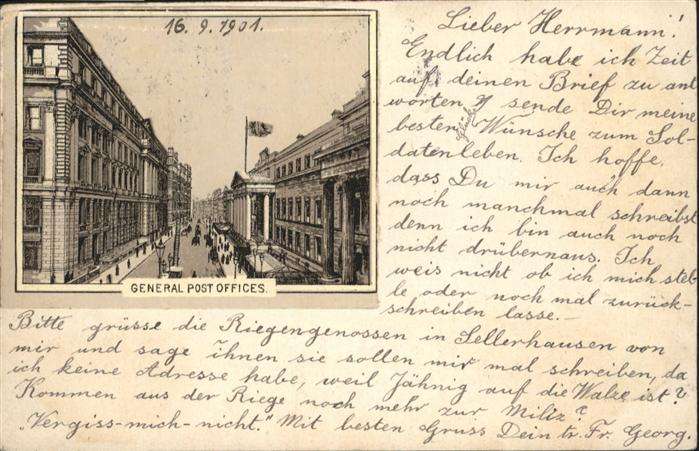 16. 9. 1901.
Lieber Herrmann!
Endlich habe ich Zeit
auf deinen Brief zu ant
worten u sende Dir meine
besten Glück Wünsche zum Sol-
datenleben. Ich hoffe,
dass Du mir auch dann
noch manchmal schreibst
denn ich bin auch noch
nicht drübernaus. Ich
weis nicht ob ich mich stel-
le oder noch mal zurück-
schreiben lasse.-
GENERAL POST OFFICES.
Bitte grüsse die Riegengenossen in Sellerhausen von
mir und sage ihnen sie sollen mir mal schreiben, da
ich keine Adresse habe, weil Jähnig auf die Walze ist?
Kommen aus der Riege noch mehr zur Miliz?
"Vergiss-mich-nicht." Mit besten Gruss Dein tr. Fr. Georg.